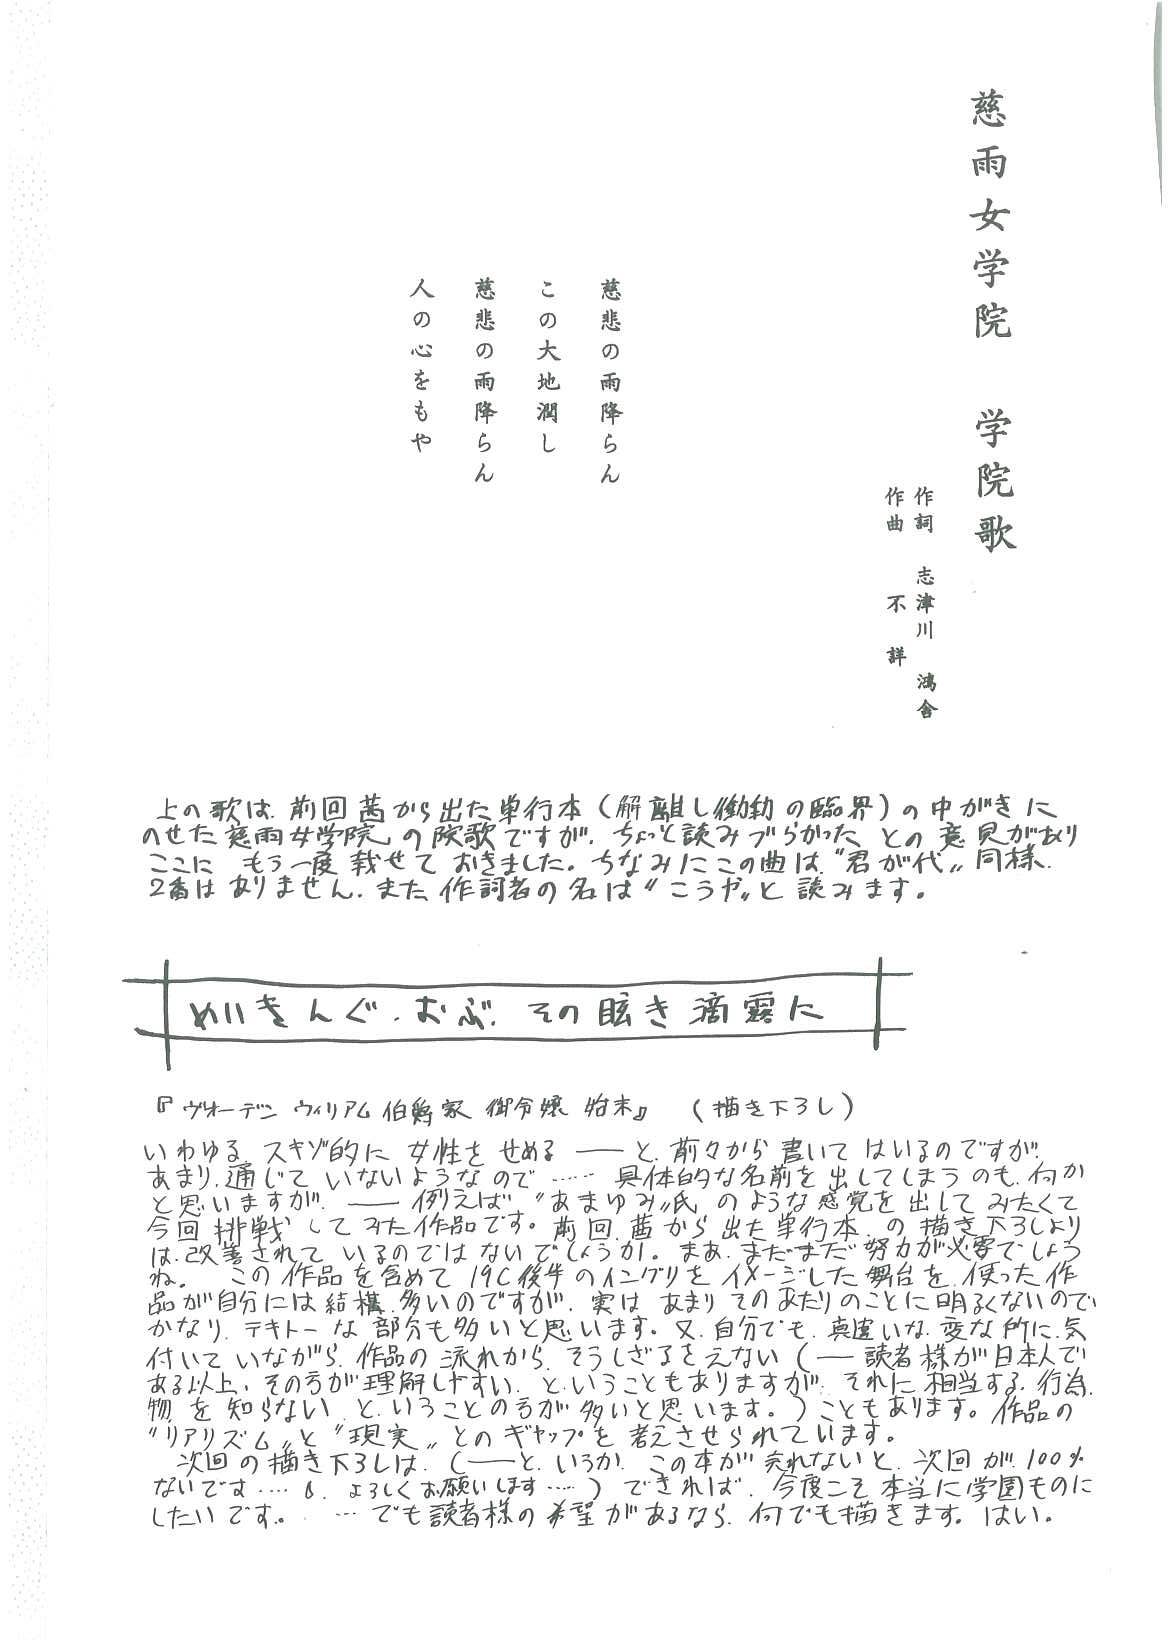 慈雨女学院　学院歌
作詞　志津川　鴻舎
作曲　不詳
慈悲の雨降らん
この大地潤し
慈悲の雨降らん
人の心をもや
上の歌は、前回茜から出た単行本（解離し働動の臨界）の中がきに
のせた慈雨女学院、の院歌ですが、ちょっと読みづらかった、との意見があり
ここに、もう一度載せておきました。ちなみにこの曲は、“君が代”同様、
2番はありません。また、作詞者の名は“こうや”と読みます。
めいきんぐ・おぶ、その眩き滴露に
『ヴォーデンウィリアム伯爵家 御令嬢 始末』　（描き下ろし）
いわゆる、スキゾ的に女性をせめる――と、前々から書いてはいるのですが、
あまり、通じていないようなので……具体的な名前を出してしまうのも、何か
と思いますが、――例えば“あまゆみ”氏、のような感覚を出してみたくて
今回挑戦してみた作品です。前回、茜から出た単行本、の描き下ろしより
は、改善されているのではないでしょうか。まあ、まだまだ努力が必要でしょう
ね。　この作品を含めて19C後半のイングリをイメージした舞台を、使った作
品が自分には結構、多いのですが、実はあまりそのあたりのことに明るくないので、
かなり、テキトーな部分も多いと思います。又、自分でも、真違いな、変な所に、気
付いていながら、作品の流れから、そうしざるをえない（――読者様が日本人で
ある以上、その方が理解しやすい、と、いうこともありますが、それに相当する、行為、
物、を知らない、と、いうことの方が多いと思います。）こともあります。作品の
“リアリズム”と“現実”とのギャップを考えさせられています。
次回の描き下ろしは、（――と、いうか、この本が売れないと、次回が、100％
ないです……。よろしくお願いします……）できれば、今度こそ本当に学園ものに
したいです。　…でも読者様の希望があるなら、何でも描きます。はい。